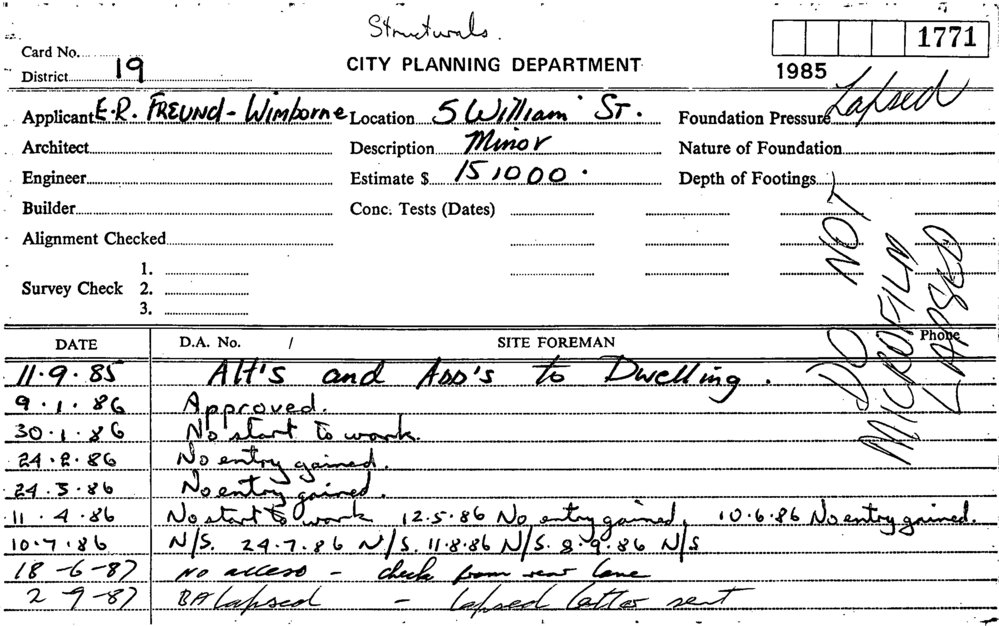 Structurals.
Card No.
1771
District 19
CITY PLANNING DEPARTMENT
1985
Lapsed
Applicant E.R. FREUND - Wimborne Location 5 William St. Foundation Pressure
Architect Description Minor Nature of Foundation
Engineer Estimate $ 15,000. Depth of Footings
Builder Conc. Tests (Dates)
Alignment Checked
Survey Check
1.
2.
3.
DO NOT
MICROFILM
LAPSED
DATE D.A. No. / SITE FOREMAN Phone
11.9.85 Alt's and Add's to Dwelling.
9.1.86 Approved.
30.1.86 No start to work.
24.2.86 No entry gained.
24.3.86 No entry gained.
11.4.86 No start to work 12.5.86 No entry gained, 10.6.86 No entry gained.
10.7.86 N/S. 24.7.86 N/S. 11.8.86 N/S. 8.9.86 N/S
18-6-87 No access - check from rear lane
2-9-87 BA lapsed - lapsed letter sent